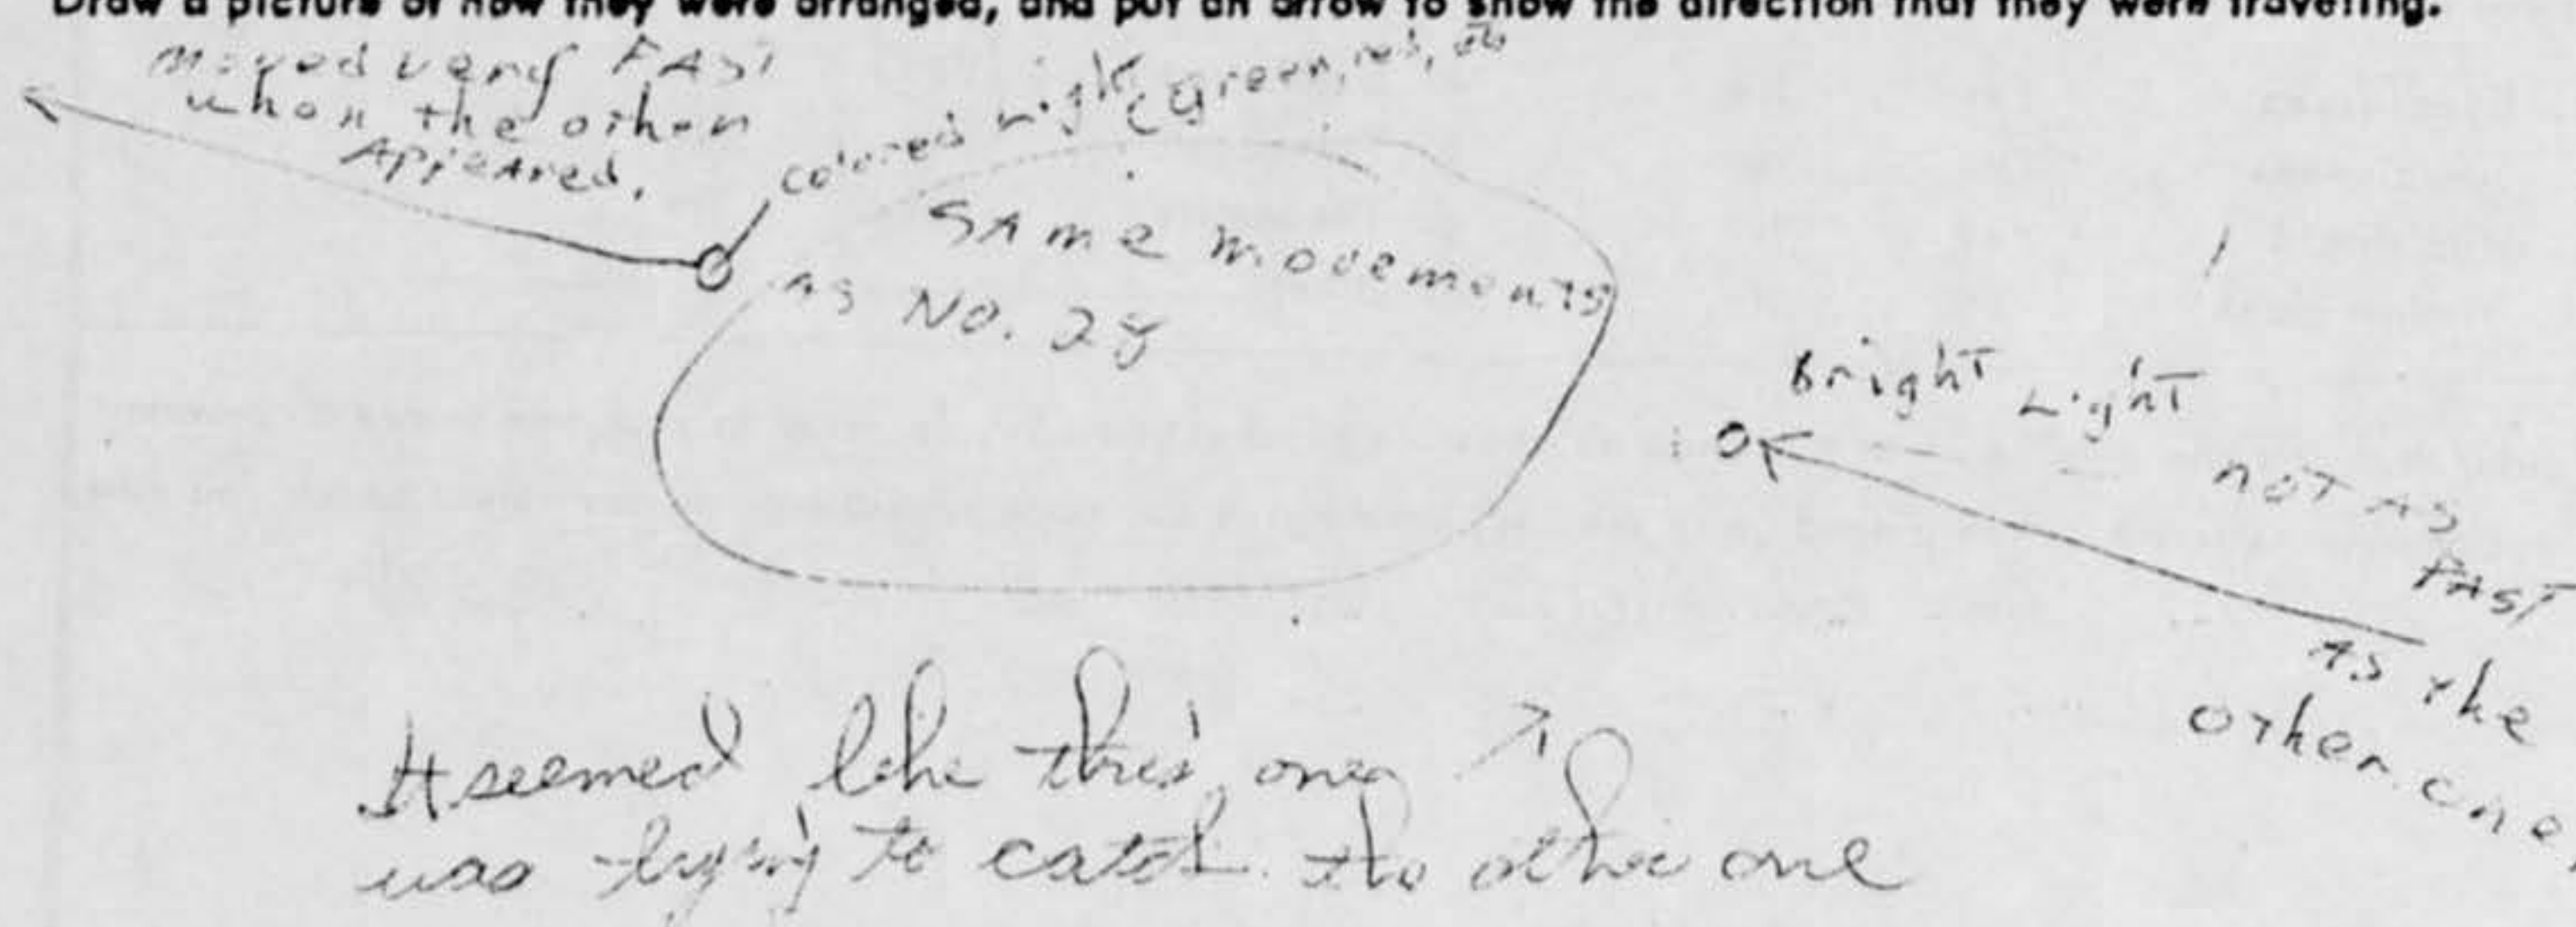 Draw a picture of how they were arranged, and put an arrow to show the direction that they were traveling.
Moved very FAST
when the other
Appeared.
colored Light (green, red, etc
SAme movements
as NO. 28
Bright Light
not As
FAST
As the
other one.
It seemed like this one
was trying to catch the other one